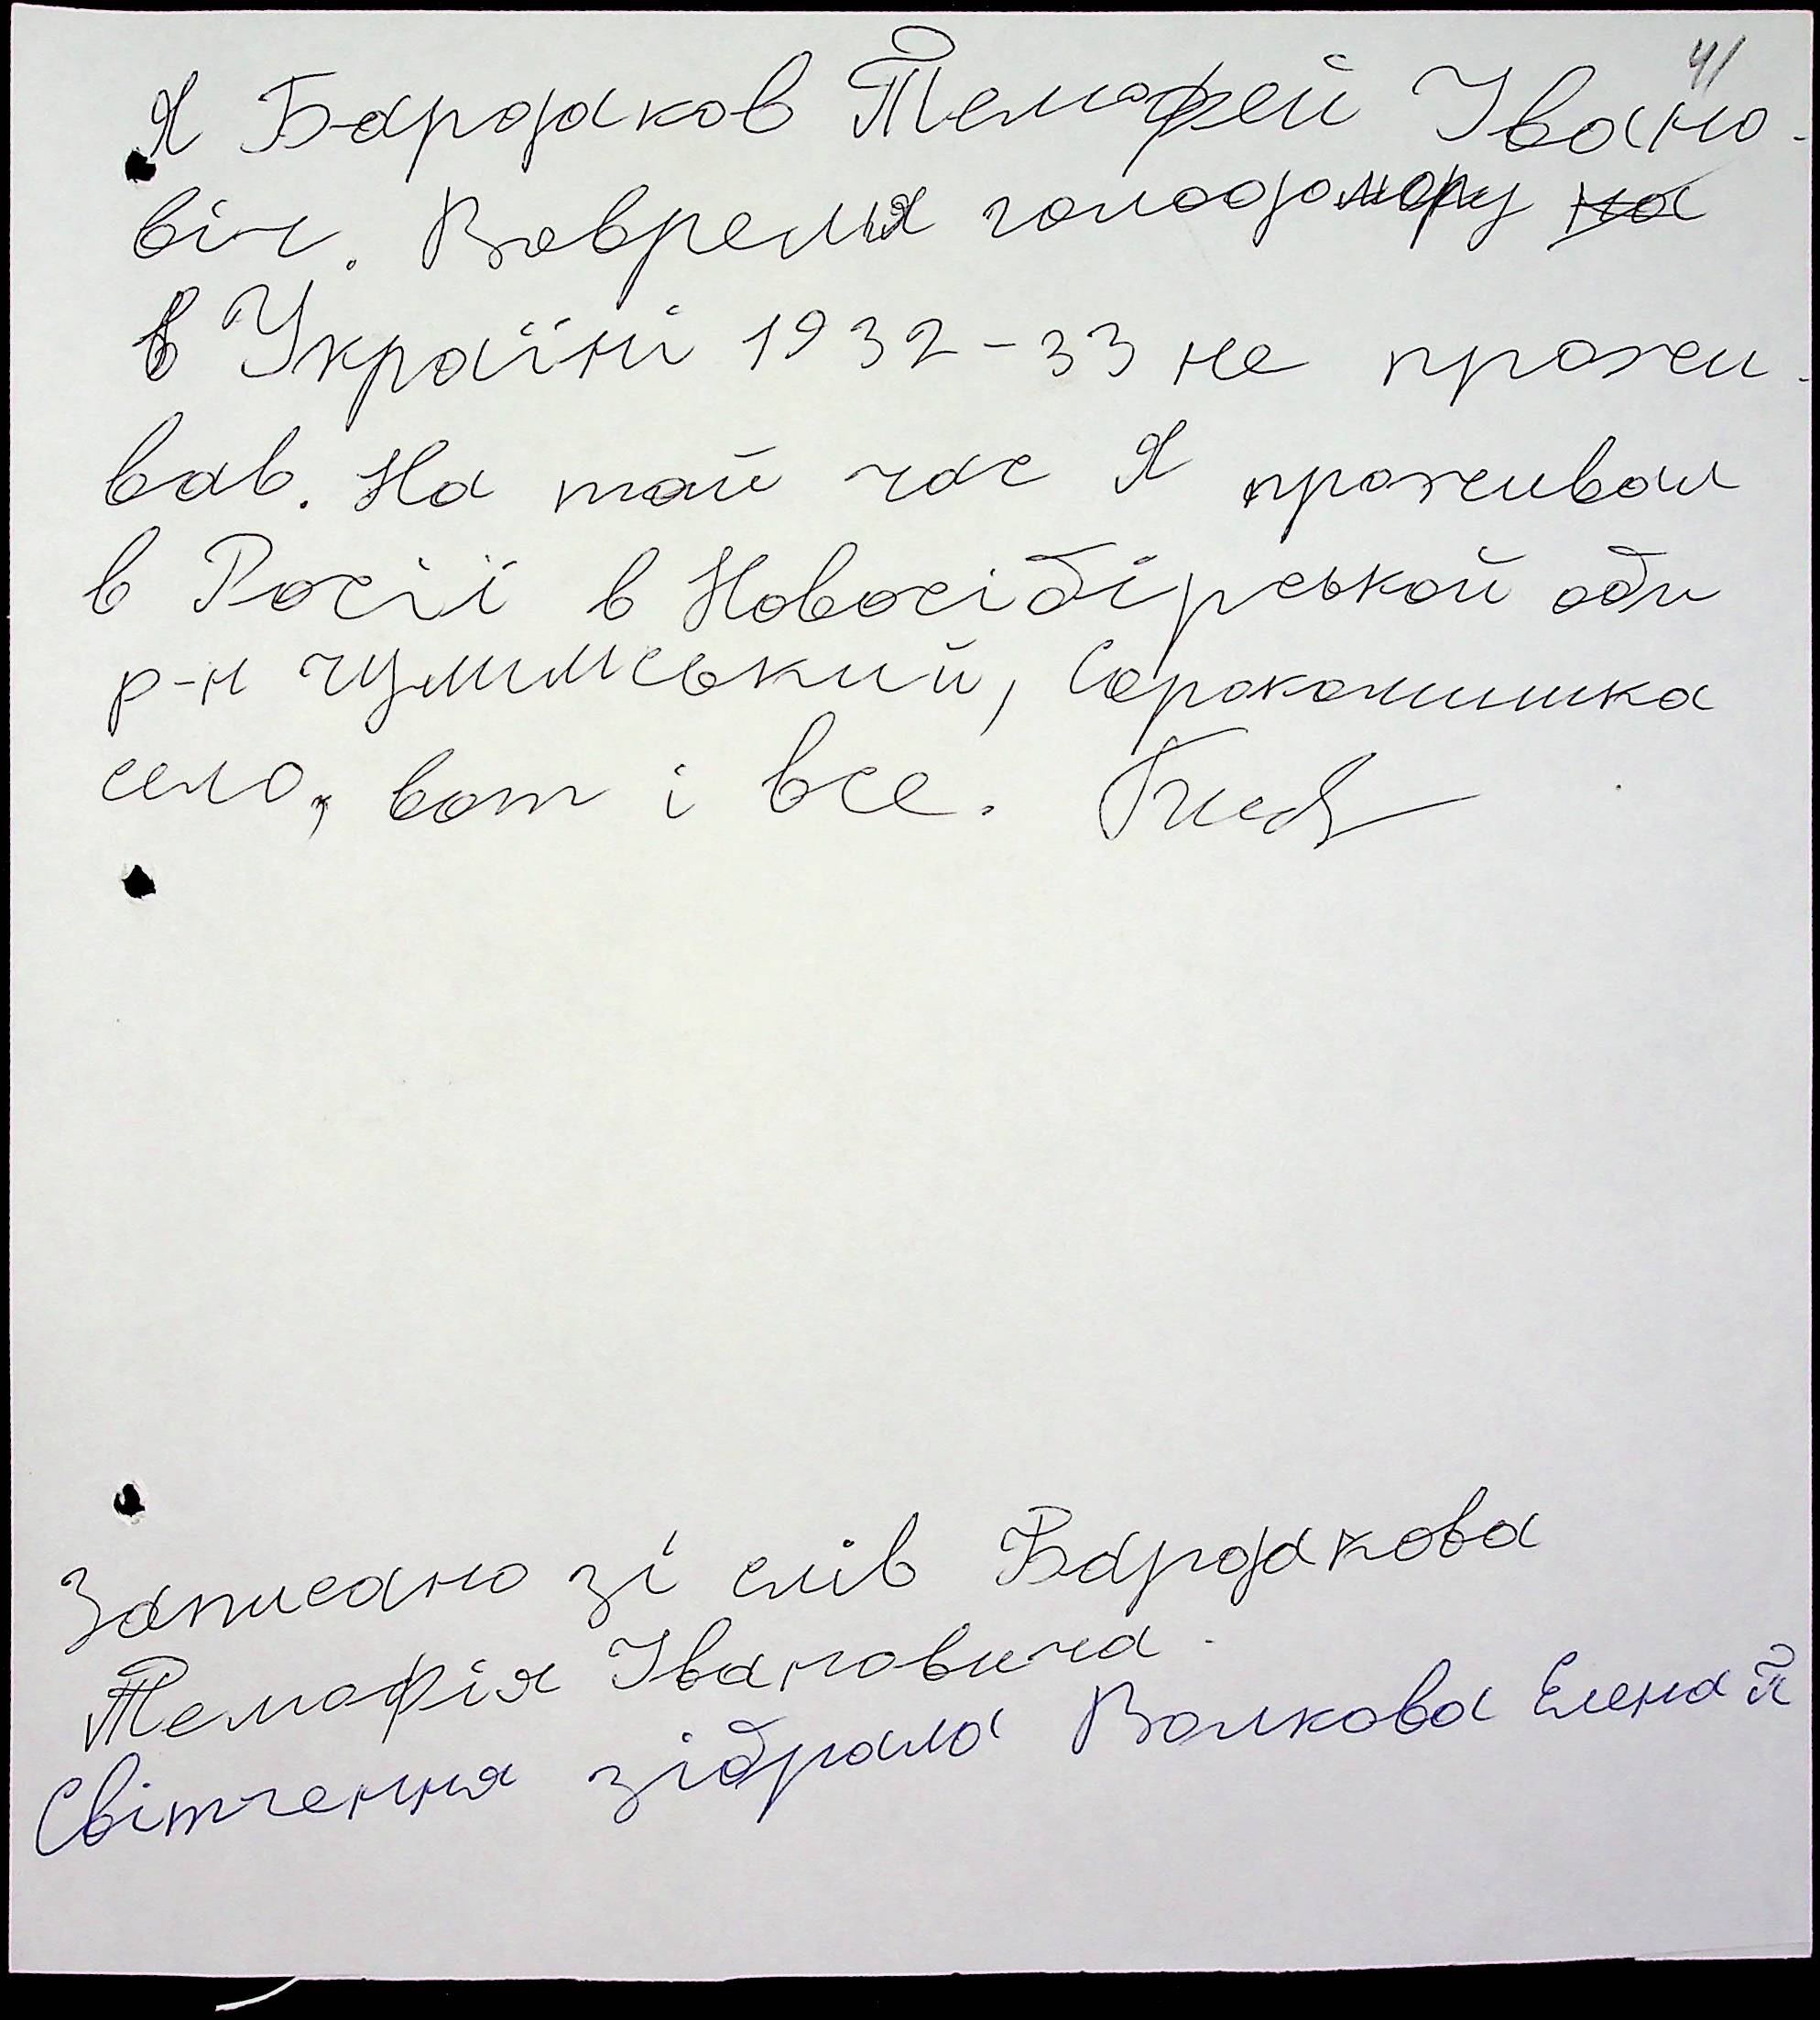 41
Я Бардаков Темофей Івано-
віч. Вовремья голодомору на
в Україні 1932-33 не прожи-
вав. На той час я проживал
в Росії в Новосібірськой обл
р-н чулимський, Сорокомишка
село, вот і все.
Записано зі слів Бардакова
Темофія Івановича.
Світчення зібрала Волкова Елена Й